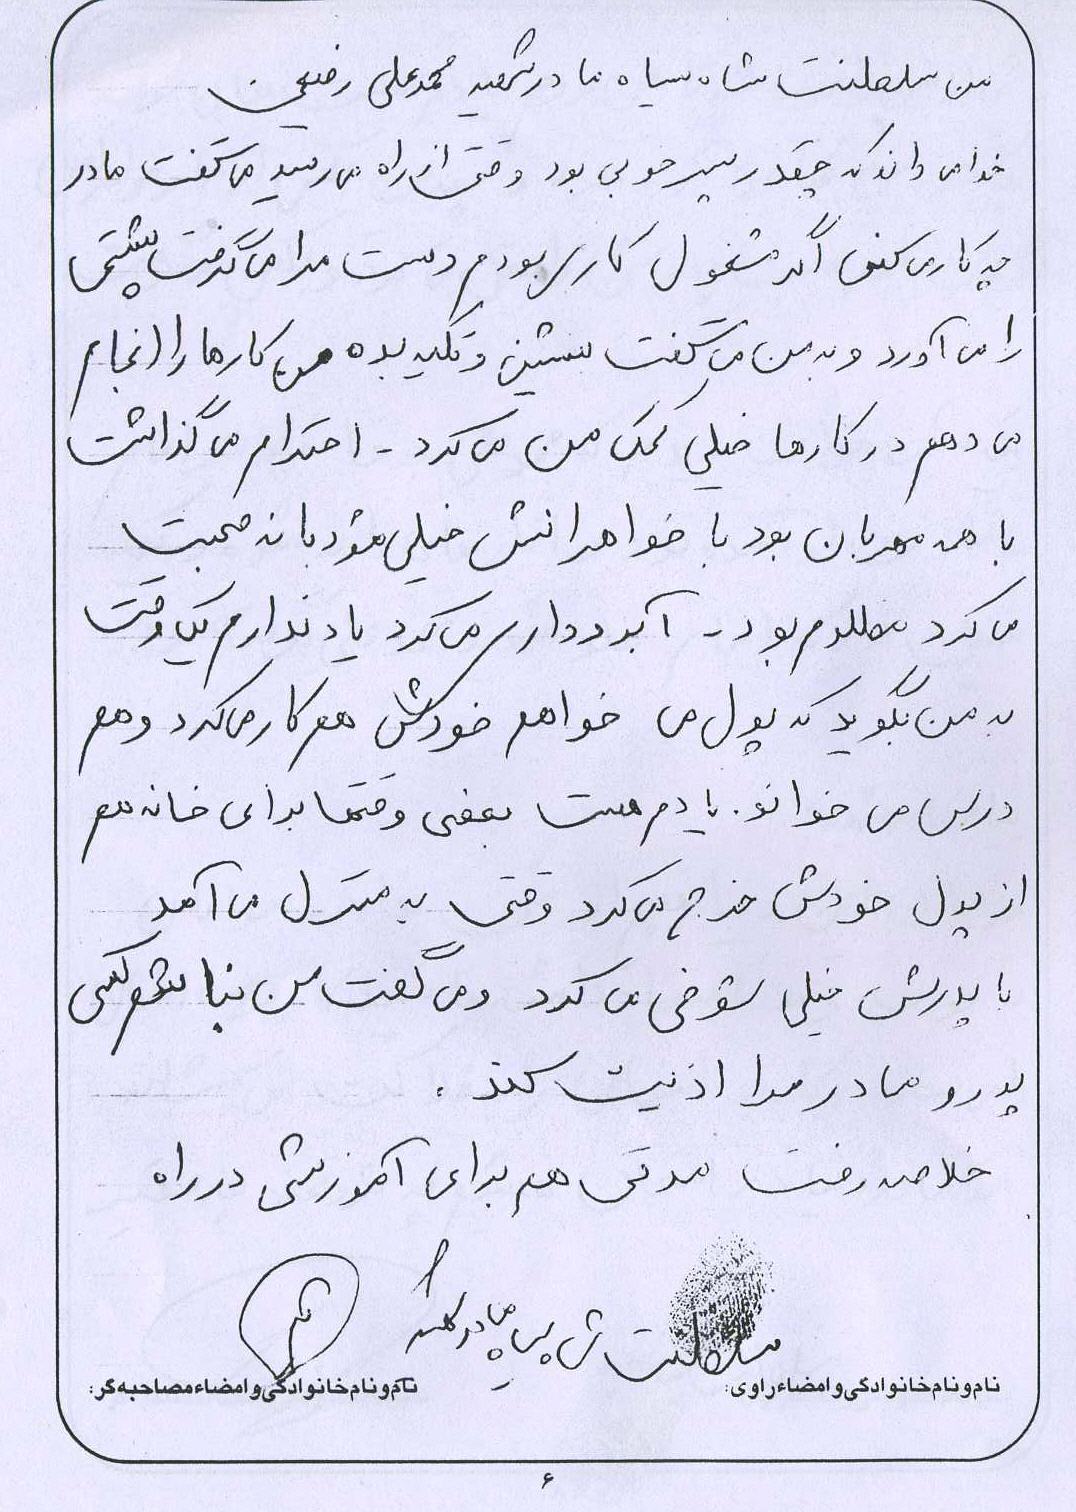 من سلطنت شاه سیاه مادر شهید محمد علی رفیعی
خدا می داند که چقدر پسر خوبی بود وقتی از راه می رسید می گفت مادر
چه کار می کنی اگر مشغول کاری بودم دست مرا می گرفت پشتی
را می آورد و به من می گفت بنشین و تکیه بده من کارها را انجام
می دهم در کارها خیلی کمک من می کرد - احترام می گذاشت
با همه مهربان بود با خواهرانش خیلی مؤدبانه صحبت
می کرد مظلوم بود - آبروداری می کرد یاد ندارم یک وقت
به من بگوید که پول می خواهم خودش هم کار می کرد و هم
درس می خواند. یادم هست بعضی وقتها برای خانه هم
از پول خودش خرج می کرد وقتی به منزل می آمد
با پدرش خیلی شوخی می کرد و می گفت من نباشم کسی
پدر و مادر مرا اذیت کند.
خلاصه رفت مدتی هم برای آموزشی در راه
سلطنت شاه سیاه مادر
نام و نام خانوادگی و امضاء راوی: نام و نام خانوادگی و امضاء مصاحبه گر:
۶